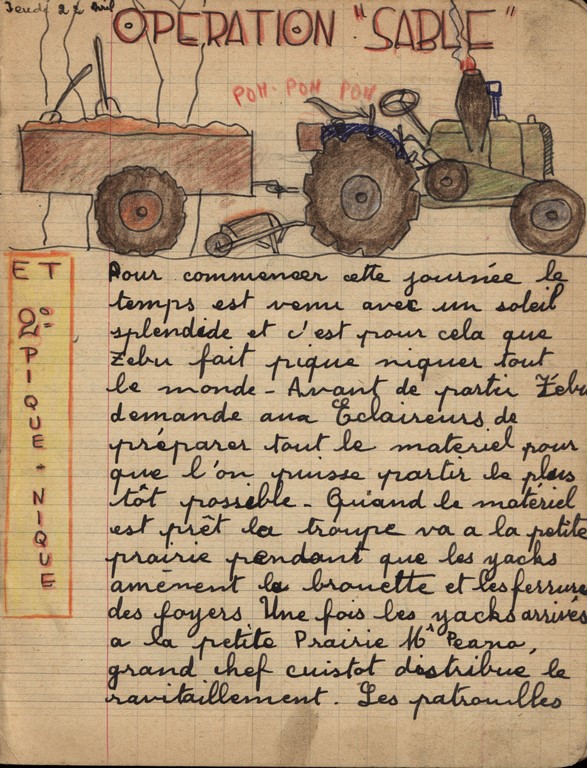 Jeudi 22 Avril
OPERATION "SABLE"
POM - POM POM
ET
2e
PIQUE - NIQUE
Pour commencer cette journée le
temps est venu avec un soleil
splendide et c'est pour cela que
Zébu fait pique niquer tout
le monde - Avant de partir Zébu
demande aux Eclaireurs de
préparer tout le materiel pour
que l'on puisse partir le plus
tôt possible - Quand le matériel
est prêt la troupe va a la petite
prairie pendant que les yacks
amènent la brouette et les ferrures
des foyers Une fois les yacks arrivés
a la petite Prairie Mr Peano,
grand chef cuistot distribue le
ravitaillement. Les patrouilles